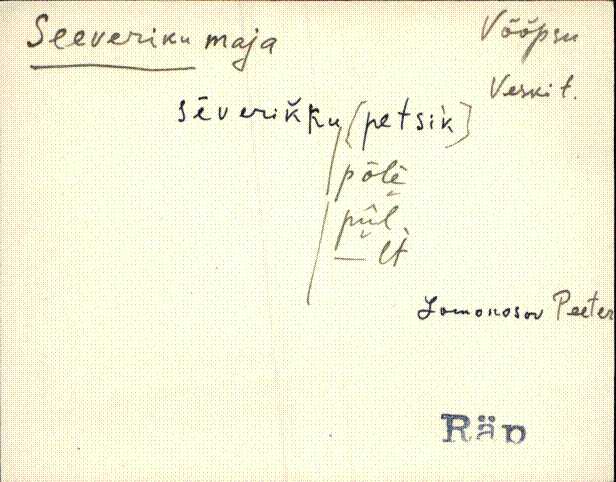 Seeveriku maja
Võõpsu
Veskit.
sēverikku [petsik]
põlē
pīl
— lt
Lomonosov Peeter
Räp